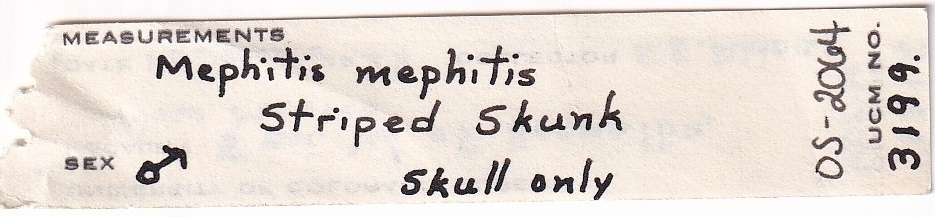 MEASUREMENTS
Mephitis mephitis
Striped Skunk
SEX ♂
Skull only
OS-2064
UCM NO.
3199.